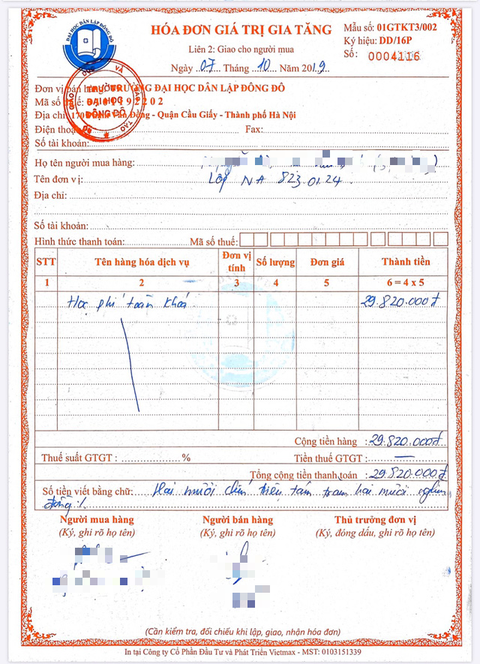 HÓA ĐƠN GIÁ TRỊ GIA TĂNG
Liên 2: Giao cho người mua
Ngày 07 Tháng 10 Năm 2019
Mẫu số: 01GTKT3/002
Ký hiệu: DD/16P
Số: 0004116
ĐẠI HỌC DÂN LẬP ĐÔNG ĐÔ
Đơn vị bán TRƯỜNG ĐẠI HỌC DÂN LẬP ĐÔNG ĐÔ
Mã số
Địa chỉ - Quận Cầu Giấy - Thành phố Hà Nội
Điện thoại Fax:
Số tài khoản:
TRƯỜNG
ĐẠI HỌC
ĐÔNG ĐÔ
Họ tên người mua hàng:
Tên đơn vị: Lớp NA 823.01.24.
Địa chỉ:
Số tài khoản:
Hình thức thanh toán: Mã số thuế:
STT Tên hàng hóa dịch vụ Đơn vị tính Số lượng Đơn giá Thành tiền
1 2 3 4 5 6 = 4 x 5
Học phí toàn khoá 29.820.000đ
Cộng tiền hàng : 29.820.000đ
Thuế suất GTGT : % Tiền thuế GTGT : —
Tổng cộng tiền thanh toán : 29.820.000đ
Số tiền viết bằng chữ: Hai mươi chín triệu tám trăm hai mươi nghìn
đồng ./.
Người mua hàng Người bán hàng Thủ trưởng đơn vị
(Ký, ghi rõ họ tên) (Ký, ghi rõ họ tên) (Ký, đóng dấu, ghi rõ họ tên)
(Cần kiểm tra, đối chiếu khi lập, giao, nhận hóa đơn)
In tại Công ty Cổ Phần Đầu Tư và Phát Triển Vietmax - MST: 0103151339